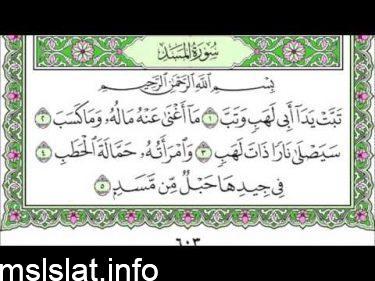 سُورَةُ المَسَدِ
بِسْمِ اللَّهِ الرَّحْمَٰنِ الرَّحِيمِ
تَبَّتْ يَدَا أَبِي لَهَبٍ وَتَبَّ ١ مَا أَغْنَىٰ عَنْهُ مَالُهُ وَمَا كَسَبَ ٢
سَيَصْلَىٰ نَارًا ذَاتَ لَهَبٍ ٣ وَامْرَأَتُهُ حَمَّالَةَ الْحَطَبِ ٤
فِي جِيدِهَا حَبْلٌ مِّن مَّسَدٍ ٥
٦٠٣
mslslat.info